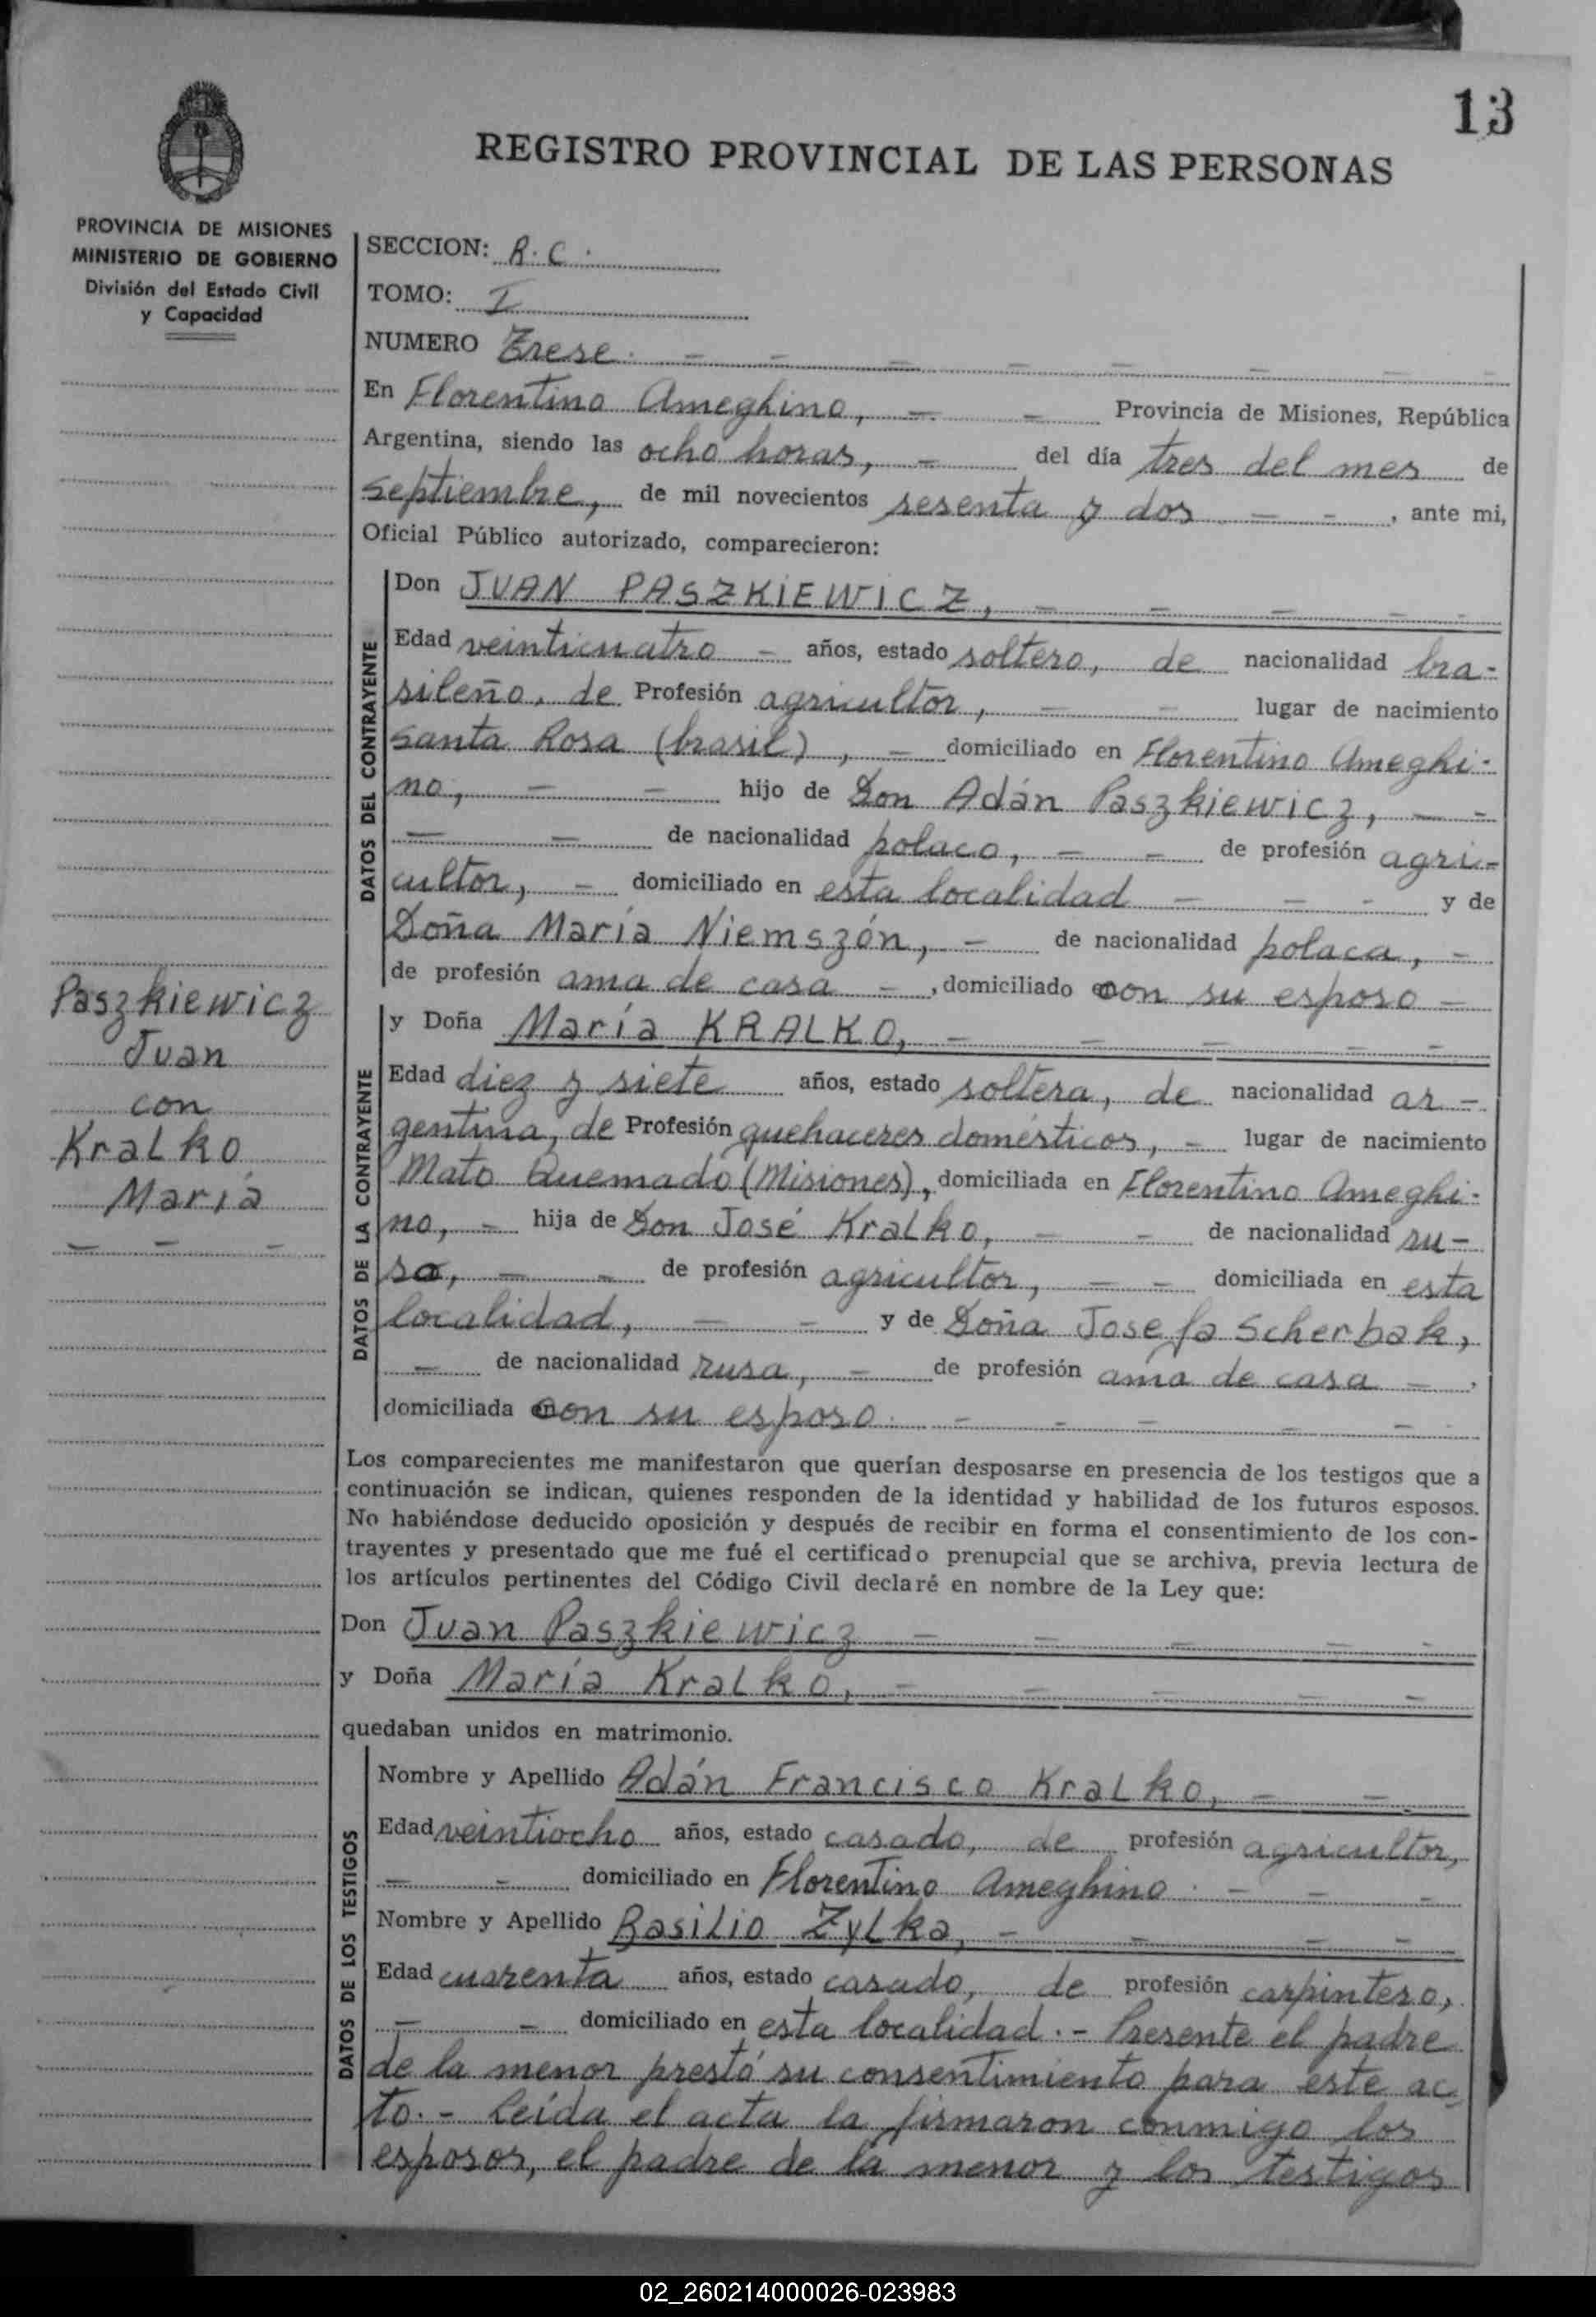 13
REGISTRO PROVINCIAL DE LAS PERSONAS
PROVINCIA DE MISIONES
MINISTERIO DE GOBIERNO
División del Estado Civil
y Capacidad
SECCION: R. C.
TOMO: I
NUMERO Trese. - - - - - - - -
En Florentino Ameghino, - - Provincia de Misiones, República
Argentina, siendo las ocho horas, - del día tres del mes de
septiembre, de mil novecientos sesenta y dos - - , ante mi,
Oficial Público autorizado, comparecieron:
DATOS DEL CONTRAYENTE
Don JUAN PASZKIEWICZ, - - - - -
Edad veinticuatro - años, estado soltero, de nacionalidad bra-
sileño, de Profesión agricultor, - - lugar de nacimiento
Santa Rosa (brasil), - domiciliado en Florentino Ameghi-
no, - - hijo de Don Adán Paszkiewicz, - -
- - de nacionalidad polaco, - - de profesión agri-
cultor, - domiciliado en esta localidad - - - y de
Doña María Niemszón, - de nacionalidad polaca, -
de profesión ama de casa - , domiciliado con su esposo -
Paszkiewicz
Juan
con
Kralko
María
- - -
DATOS DE LA CONTRAYENTE
y Doña María KRALKO, - - - - -
Edad diez y siete años, estado soltera, de nacionalidad ar-
gentina, de Profesión quehaceres domésticos, - lugar de nacimiento
Mato Quemado (Misiones), domiciliada en Florentino Ameghi-
no, - hija de Don José Kralko, - - de nacionalidad ru-
sa, - - de profesión agricultor, - - domiciliada en esta
localidad, - - y de Doña Josefa Scherbak,
- de nacionalidad rusa, - de profesión ama de casa - ,
domiciliada con su esposo. - - - - -
Los comparecientes me manifestaron que querían desposarse en presencia de los testigos que a
continuación se indican, quienes responden de la identidad y habilidad de los futuros esposos.
No habiéndose deducido oposición y después de recibir en forma el consentimiento de los con-
trayentes y presentado que me fué el certificado prenupcial que se archiva, previa lectura de
los artículos pertinentes del Código Civil declaré en nombre de la Ley que:
Don Juan Paszkiewicz - - - - -
y Doña María Kralko, - - - - -
quedaban unidos en matrimonio.
DATOS DE LOS TESTIGOS
Nombre y Apellido Adán Francisco Kralko, - -
Edad veintiocho años, estado casado, de profesión agricultor,
- - domiciliado en Florentino Ameghino. - - -
Nombre y Apellido Basilio Zylka, - - - -
Edad cuarenta años, estado casado, de profesión carpintero,
- - domiciliado en esta localidad. - Presente el padre
de la menor prestó su consentimiento para este ac-
to. - Leída el acta la firmaron conmigo los
esposos, el padre de la menor y los testigos
02_260214000026-023983